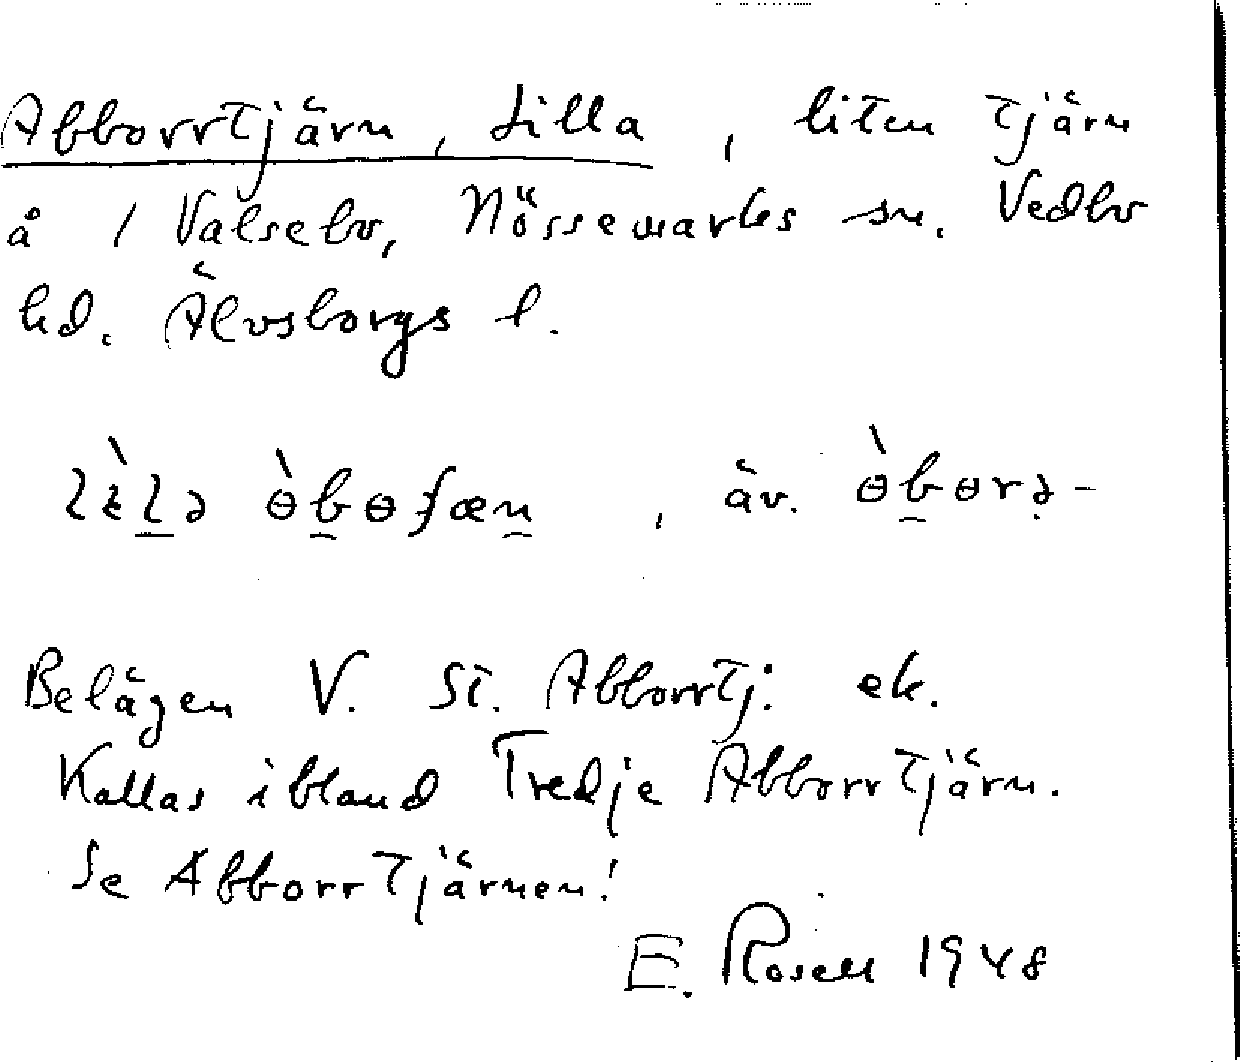 Abborrtjärn, Lilla, liten tjärn
å 1 Valsebo, Nössemarks sn. Vedbo
hd. Älvsborgs l.
lɛ̀lə ɵ̀boʃæn, äv. ɵ̀bɵrə-
Belägen V. St. Abborrtj. ek.
Kallas ibland Tredje Abborrtjärn.
Se Abborrtjärnen!
E. Rosell 1948